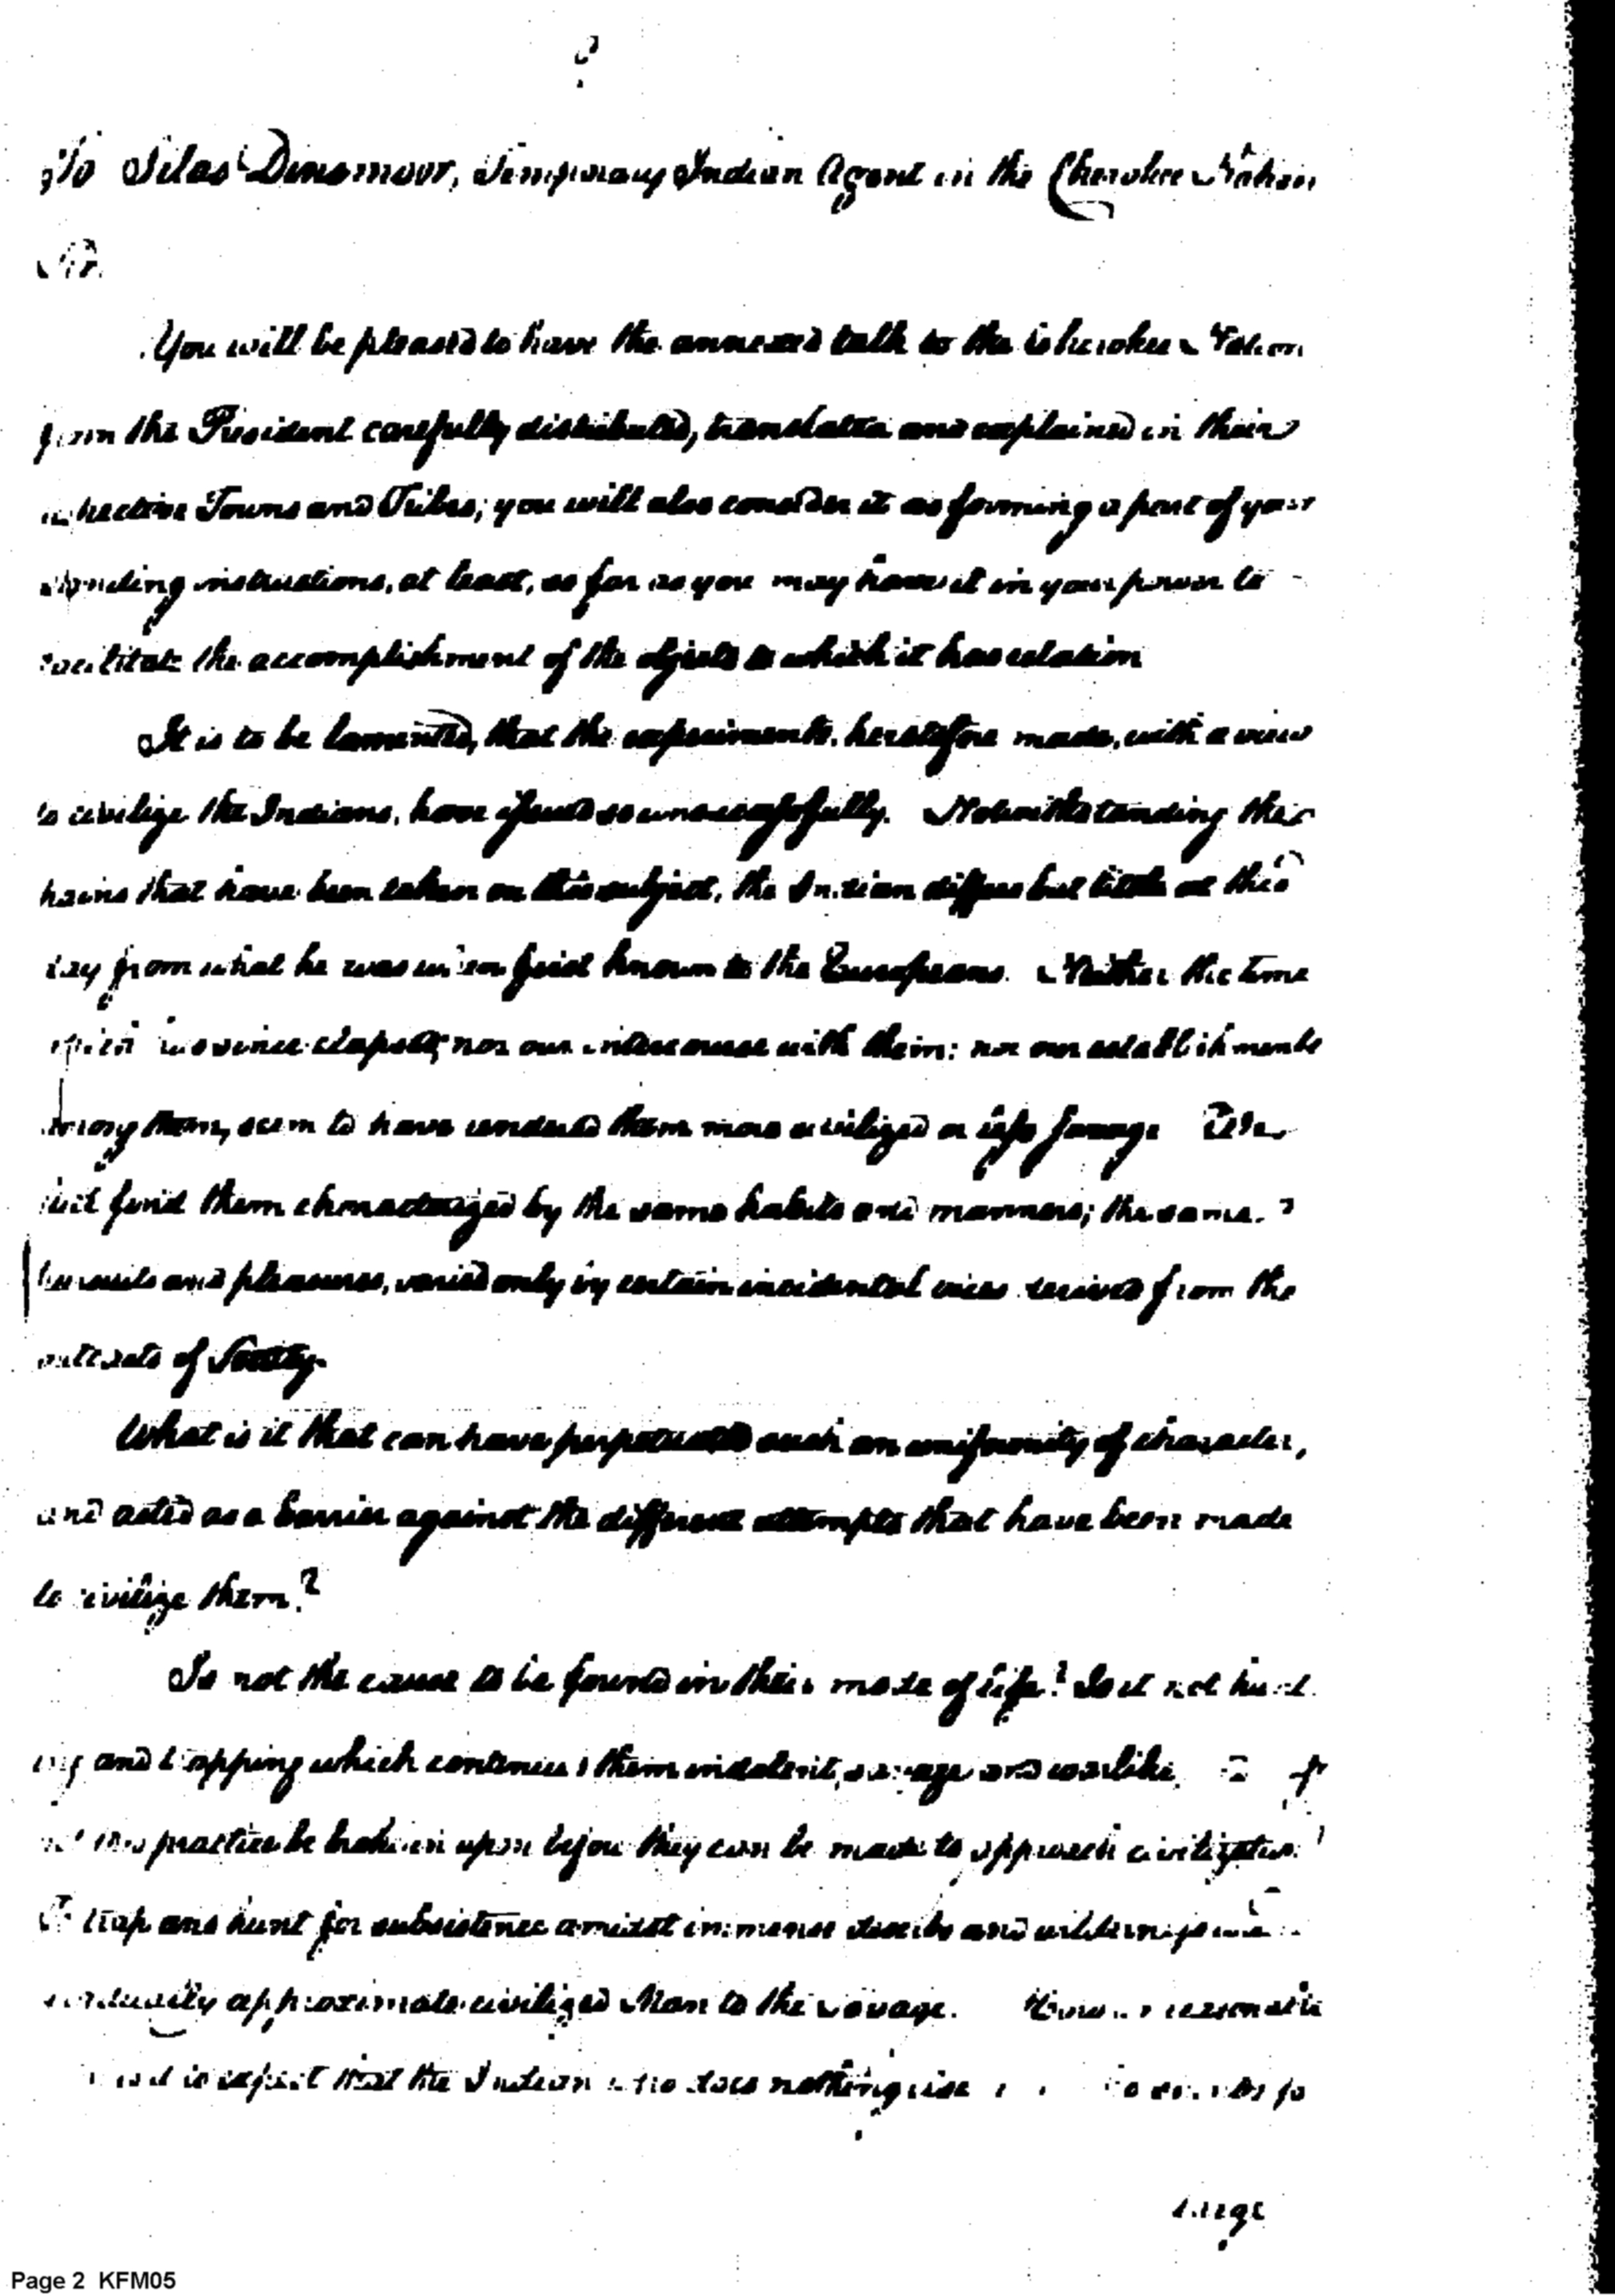 To Silas Dinsmoor, Temporary Indian Agent in the Cherokee Nation
Sir.
You will be pleased to have the annexed talk to the Cherokee Nation
from the President carefully distributed, translated and explained in their
respective Towns and Tribes; you will also consider it as forming a part of your
standing instructions, at least, as far as you may have it in your power to
facilitate the accomplishment of the objects to which it has relation
It is to be lamented, that the experiments, heretofore made, with a view
to civilize the Indians, have issued so unsuccessfully. Notwithstanding the
pains that have been taken on this subject, the Indian differs but little at this
day from what he was when first known to the Europeans. Neither the time
which has since elapsed; nor our intercourse with them: nor our establishments
among them, seem to have rendered them more civilized or less savage We
still find them characterized by the same habits and manners; the same
pursuits and pleasures, varied only by certain incidental vices derived from the
outcasts of Society.
What is it that can have perpetuated such an uniformity of character,
and acted as a barrier against the different attempts that have been made
to civilize them?
Is not the cause to be found in their mode of life? Is it not hunt
ing and trapping which continues them indolent, savage and warlike.
not this practice be broken in upon before they can be made to approach civilization?
To trap and hunt for subsistence amidst immense deserts and wilderness
gradually approximate civilized Man to the savage. reasonable
is it to expect that the Indian who does nothing else
large
Page 2 KFM05